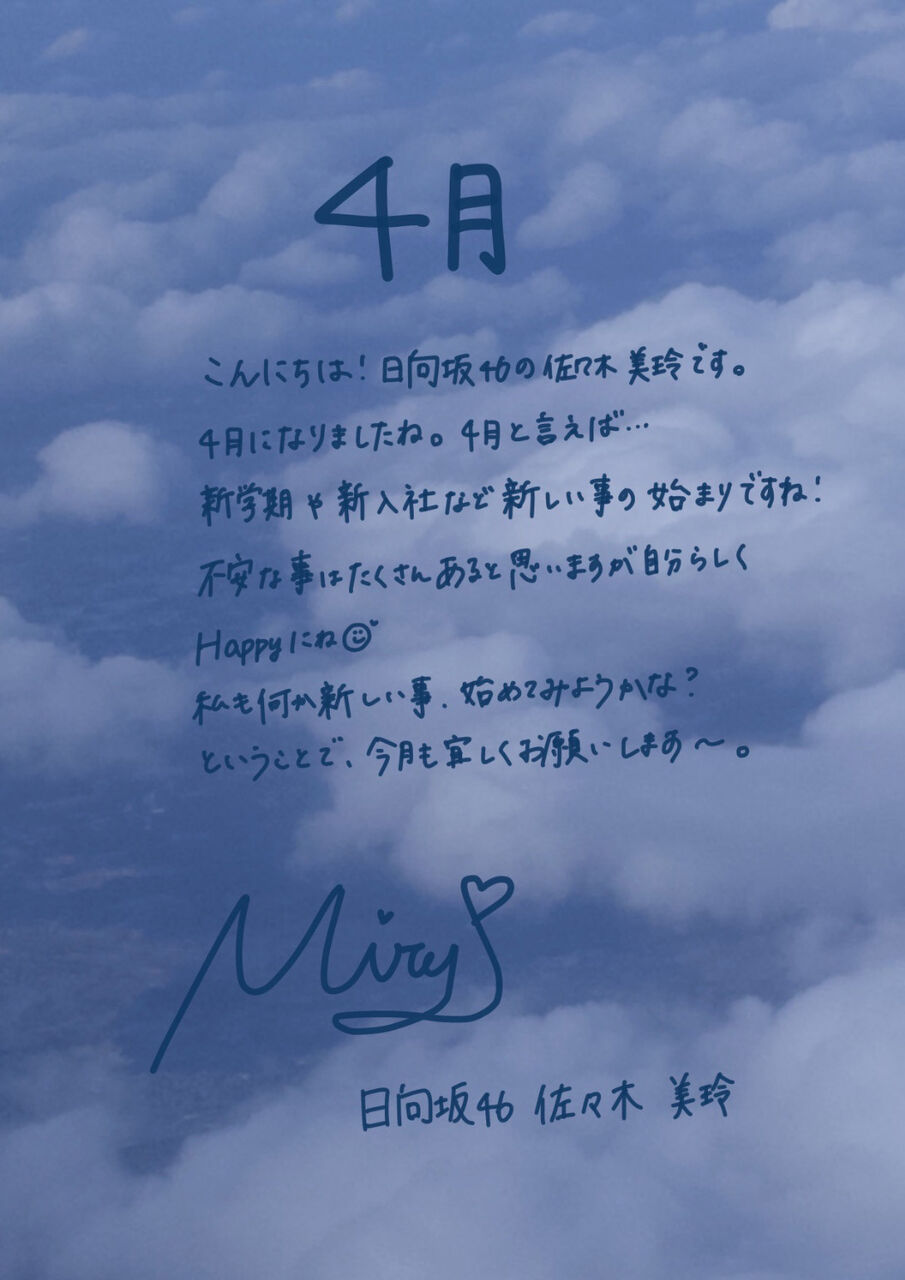 4月
こんにちは！日向坂46の佐々木美玲です。
4月になりましたね。4月と言えば…
新学期や新入社など新しい事の始まりですね！
不安な事はたくさんあると思いますが自分らしく
Happyにね☺
私も何か新しい事、始めてみようかな？
ということで、今月も宜しくお願いしまあ〜。
Mirey
日向坂46 佐々木 美玲